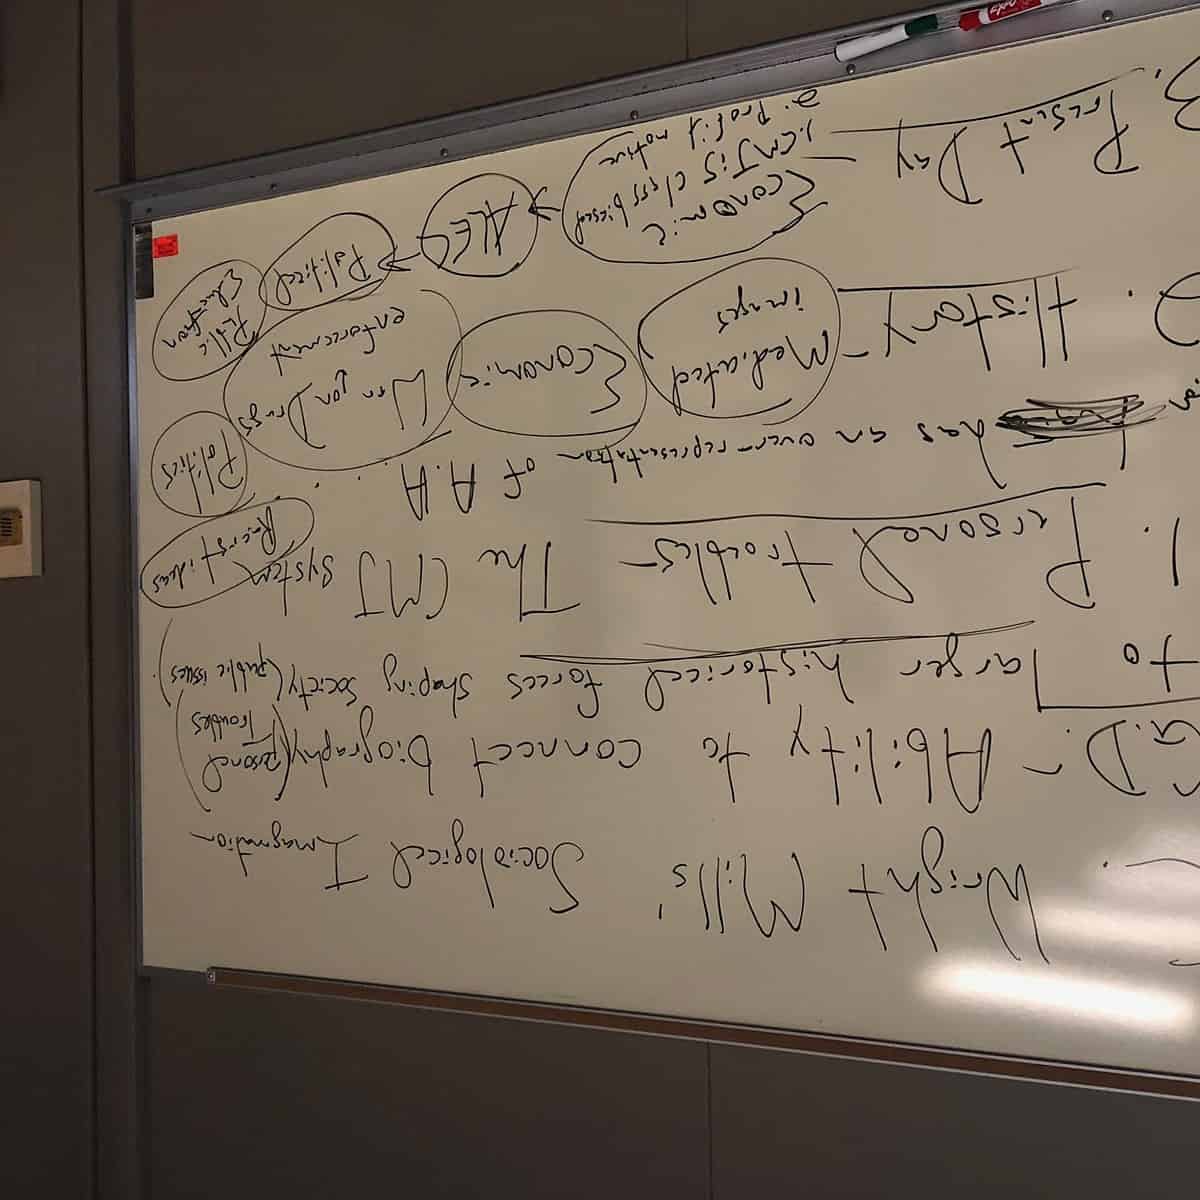 Wright Mills' Sociological Imagination
G.D. - Ability to connect biography (personal Troubles)
to larger historical forces shaping society (public issues).
1. Personal troubles - The CMJ system
has an over-representation of A.A.
Racist ideas
Politics
2. History - Mediated images
Economic
War on Drugs
enforcement
Public Education
3. Present Day - Economic
1. CMJ is class biased
2. Profit motive
ALEC
Political